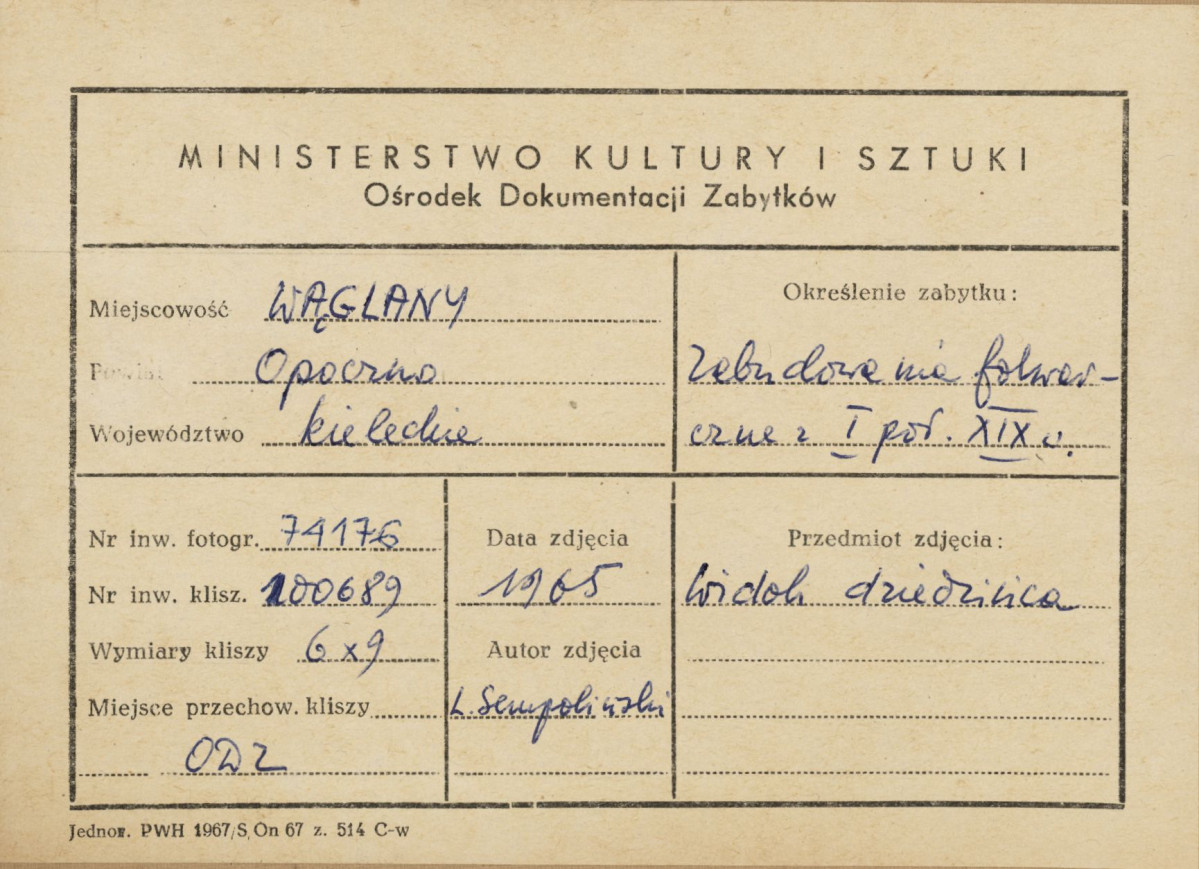 MINISTERSTWO KULTURY I SZTUKI
Ośrodek Dokumentacji Zabytków
Miejscowość WĄGLANY
Powiat Opoczno
Województwo kieleckie
Określenie zabytku:
Zabudowania folwar-
czne z I poł. XIX w.
Nr inw. fotogr. 74176
Nr inw. klisz. 100689
Wymiary kliszy 6x9
Miejsce przechow. kliszy
ODZ
Data zdjęcia
1965
Autor zdjęcia
L. Sempoliński
Przedmiot zdjęcia:
Widok dziedzińca
Jednow. PWH 1967/S, On 67 z. 514 C-w